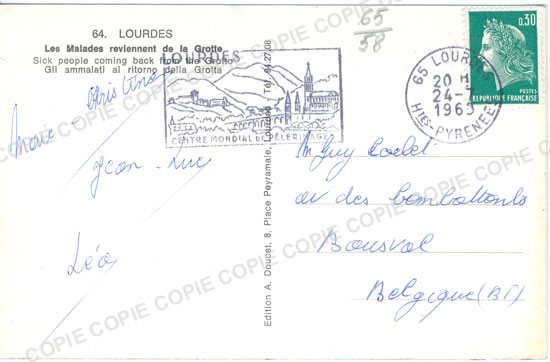 64. LOURDES
Les Malades reviennent de la Grotte
Sick people coming back from the Grotto
Gli ammalati al ritorno della Grotta
Marc - Christine
Jean-Luc
Léa
65
58
LOURDES
CENTRE MONDIAL DE PÈLERINAGES
65 LOURDES
20 H
24-
1969
HTES-PYRENEES
0,30
POSTES
RÉPUBLIQUE FRANÇAISE
Edition A. Doucet, 8, Place Peyramale, Lourdes Tél. 94.27.08
M Guy
av des combattants
Bousval
Belgique (BT)
COPIE COPIE COPIE COPIE COPIE